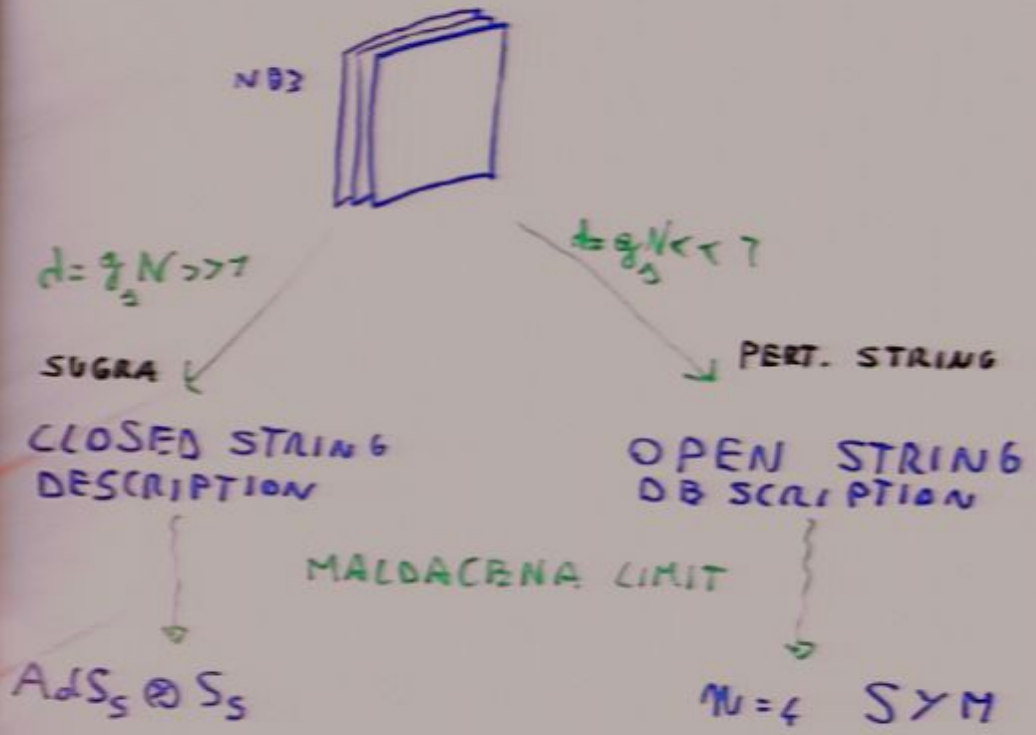 ND3
λ = g_s N >> 1
λ = g_s N << 1
SUGRA
PERT. STRING
CLOSED STRING
DESCRIPTION
OPEN STRING
DESCRIPTION
MALDACENA LIMIT
AdS₅ ⊗ S₅
N=4 SYM